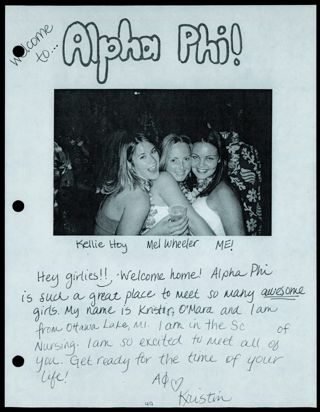 Welcome
to...
Alpha Phi!
Kellie Hoy Mel Wheeler ME!
Hey girlies!! Welcome home! Alpha Phi
is such a great place to meet so many awesome
girls. My name is Kristin O'Mara and I am
from Ottawa Lake, MI. I am in the Sc of
Nursing. I am so excited to meet all of
you. Get ready for the time of your
life!
AΦ♡
Kristin